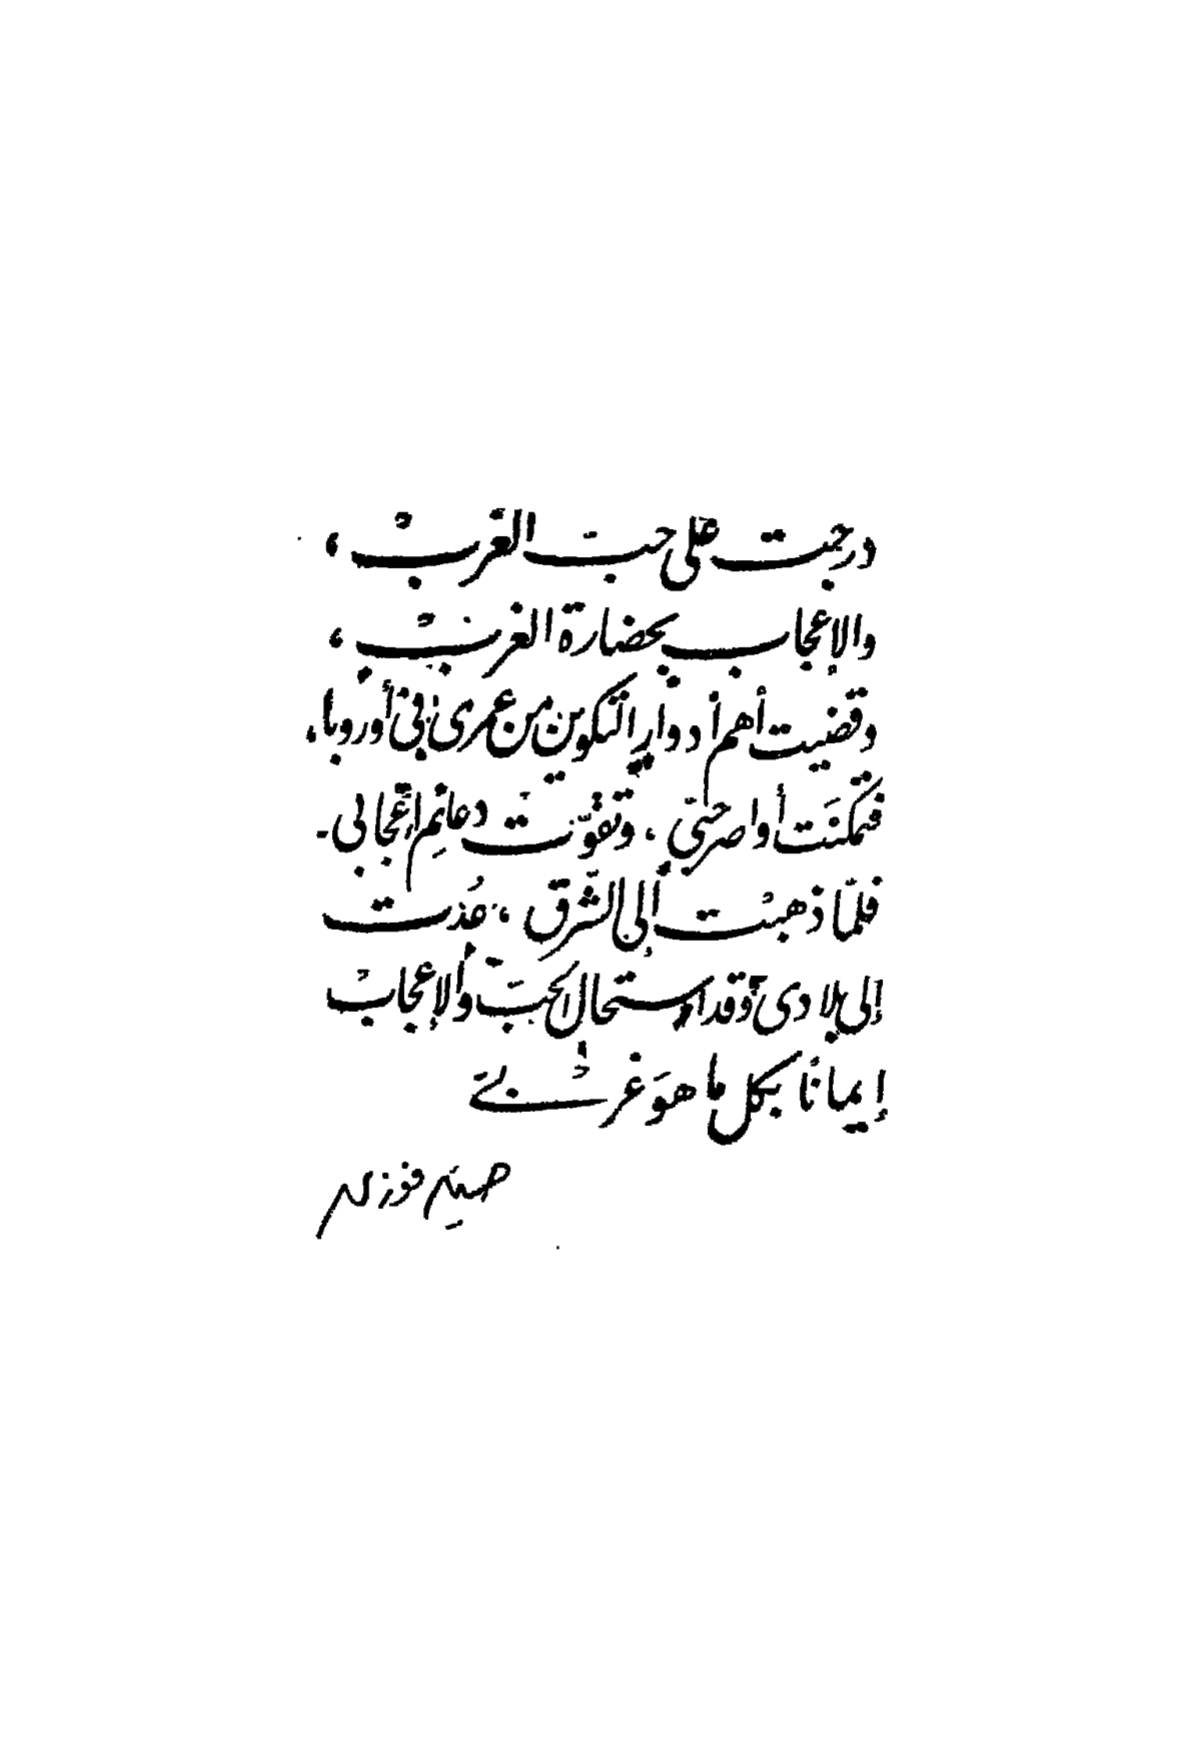 درجت على حب الغرب ،
والإعجاب بحضارة الغرب ،
وقضيت أهم أدوار التكوين من عمرى فى أوروبا ،
فتمكنت أواصر حبّى ، وتقوّت دعائم إعجابى .
فلمّا ذهبت إلى الشّرق ، عُدت
إلى بلادى وقد استحال الحبّ والإعجاب
إيمانًا بكل ما هوَ غربىّ
حسين فوزى